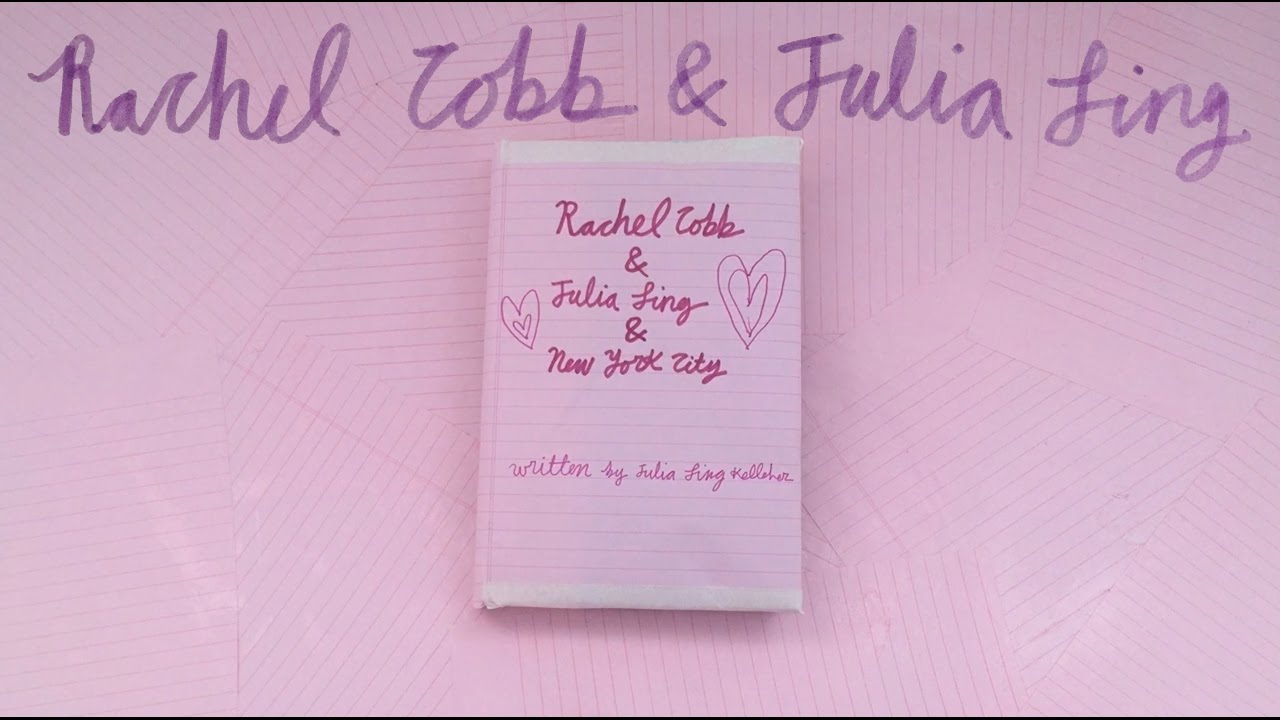 Rachel Cobb & Julia Ling
Rachel Cobb
&
Julia Ling
&
New York City
written by Julia Ling Kelleher